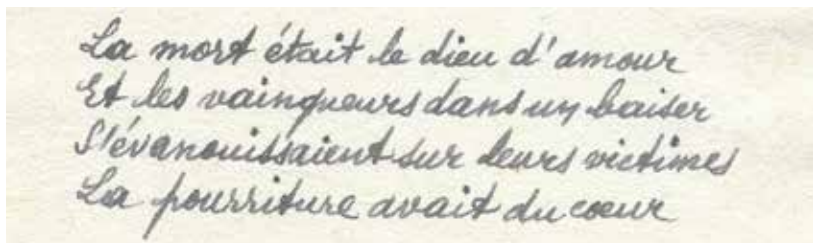 La mort était le dieu d'amour
Et les vainqueurs dans un baiser
S'évanouissaient sur leurs victimes
La pourriture avait du cœur